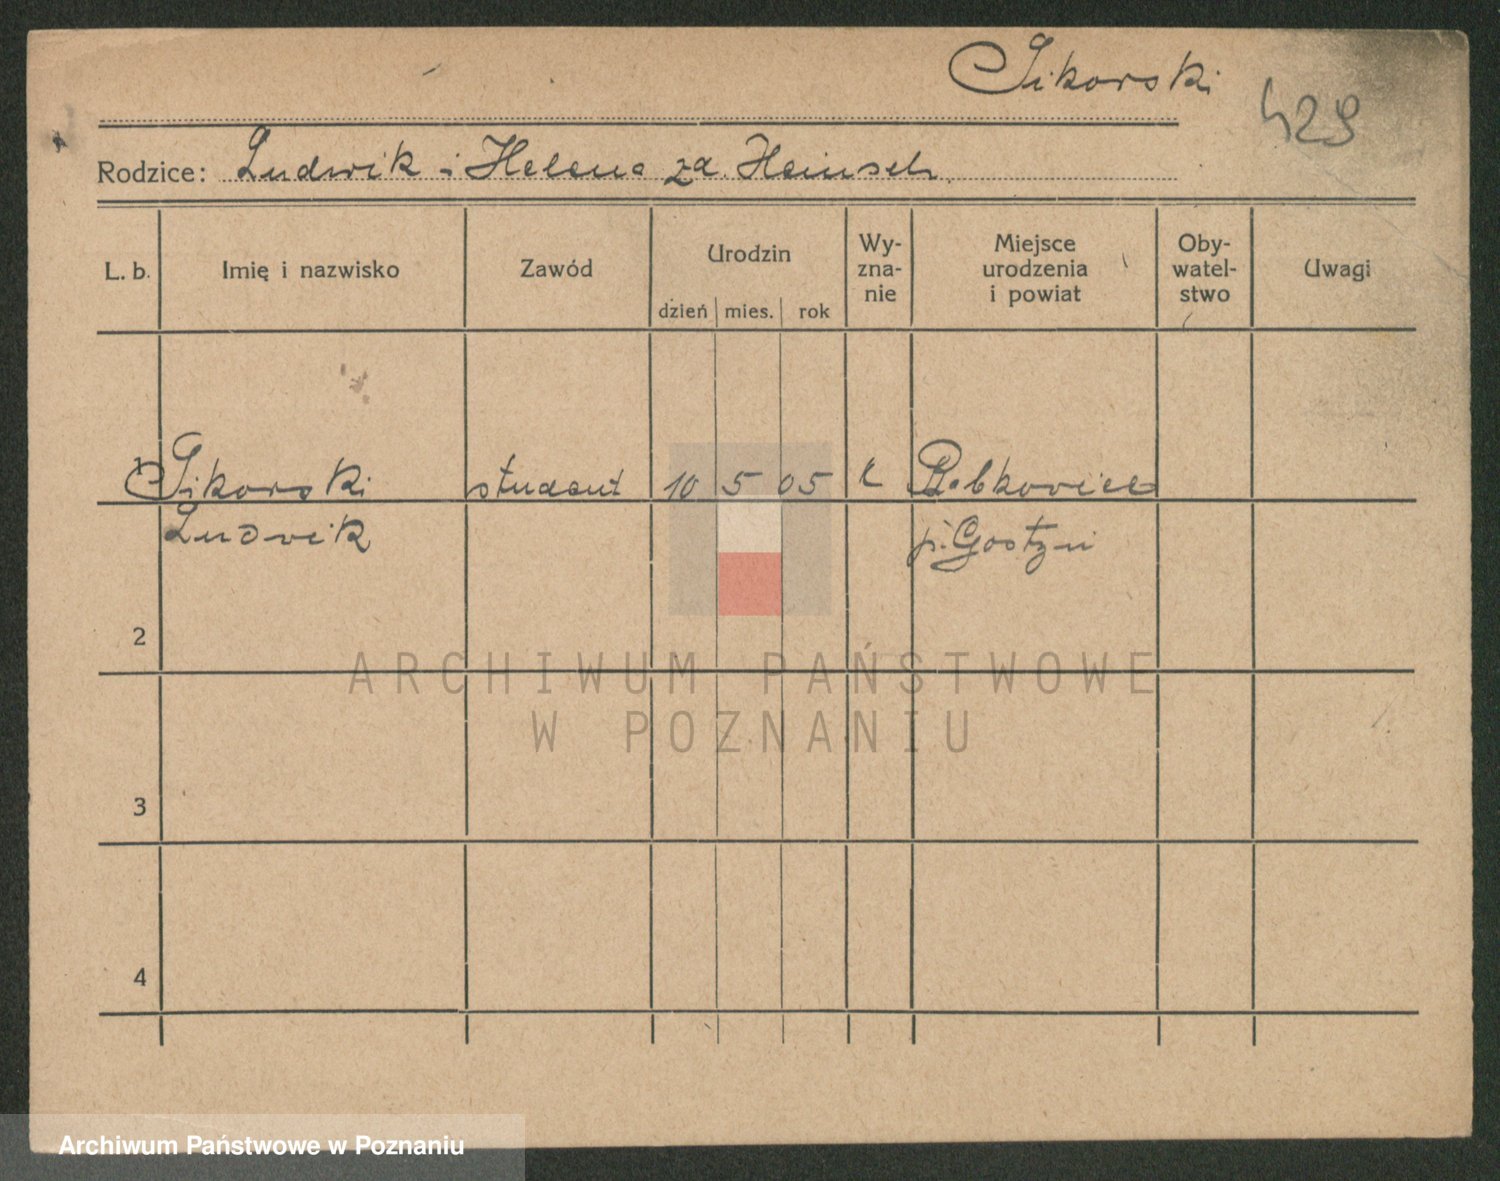 Sikorski
429
Rodzice: Ludwik i Helena za. Heinsch.
L. b. Imię i nazwisko Zawód Urodzin dzień mies. rok Wy-zna-nie Miejsce urodzenia i powiat Oby-watel-stwo Uwagi
1 Sikorski student 10 5 05 k
Ludwik p. Gostyń
2
ARCHIWUM PAŃSTWOWE
W POZNANIU
3
4
Archiwum Państwowe w Poznaniu